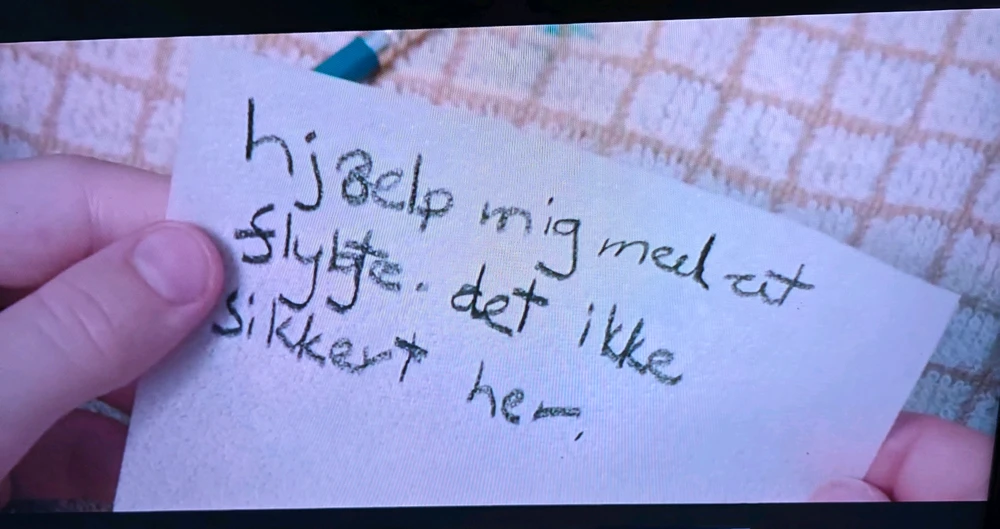 hjælp mig med at
flygte. det ikke
sikkert her.